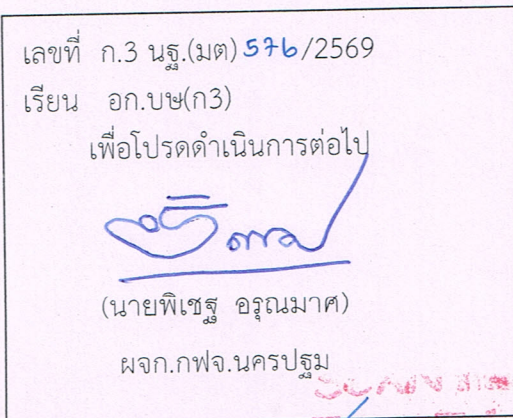 เลขที่ ก.3 นฐ.(มต) 576/2569
เรียน อก.บษ(ก3)
เพื่อโปรดดำเนินการต่อไป
(นายพิเชฐ อรุณมาศ)
ผจก.กฟจ.นครปฐม